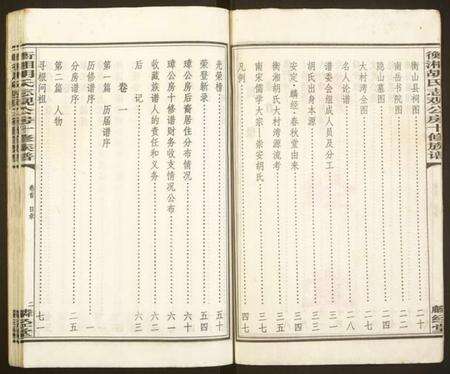 衡湘胡氏志观公房十修族谱 麟经堂
衡山县祠图 二十
南岳书院图 二一
隐山墓图 二二
大村湾全图 二四
名人论谱 二八
谱委会组成人员及分工 三一
胡氏出身本源
安定·麟经 春秋堂由来 三四
衡湘胡氏大村湾源流考 三七
南宋儒学大家——崇安胡氏
凡例 四七
光荣榜 五十
荣登新录 五四
璋公房后裔居住分布情况 六十
璋公房十修谱财务收支情况公布
收藏族谱人的责任和义务 六二
后记 六三
卷一
第一篇 历届谱序
历修谱序 一
分房谱序 二五
第二篇 人物
寻根问祖 七一
衡湘胡氏志观公房十修族谱 卷首 目录 二 麟经堂